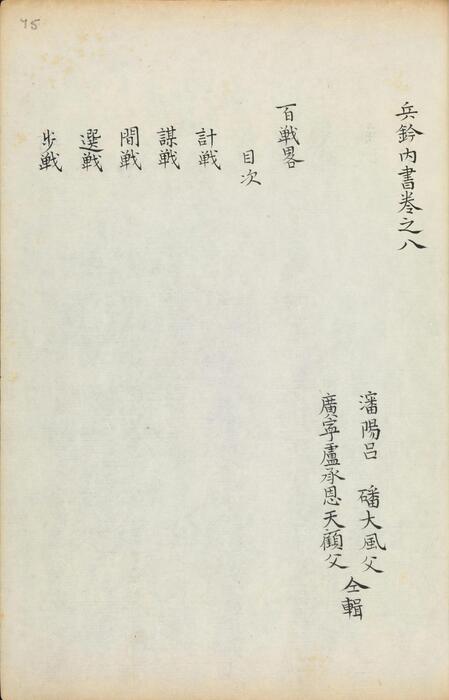 兵鈐内書巻之八
瀋陽呂 磻大風父
廣寧盧承恩天顧父
仝輯
百戦畧
目次
計戦
謀戦
間戦
選戦
步戦
75